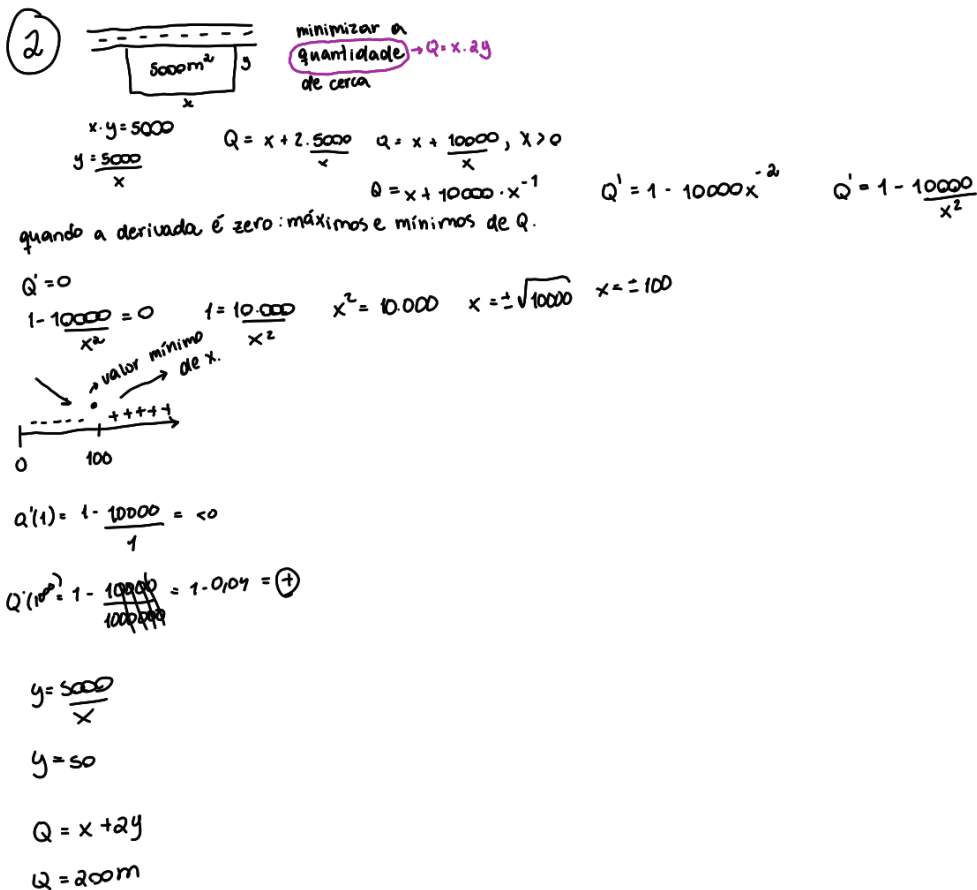 2
minimizar a
quantidade → Q = x . 2y
de cerca
5000m² y
x
x.y = 5000
y = 5000/x
Q = x + 2. 5000/x Q = x + 10000/x, x > 0
Q = x + 10000 . x⁻¹ Q' = 1 - 10000x⁻² Q' = 1 - 10000/x²
quando a derivada é zero : máximos e mínimos de Q.
Q' = 0
1 - 10000/x² = 0 1 = 10.000/x² x² = 10.000 x = ±√10000 x = ± 100
→ valor mínimo
de x.
- - - - - + + + + +
0 100
Q'(1) = 1 - 10000/1 = <0
Q'(1000) = 1 - 10000/1000000 = 1 - 0,01 = +
y = 5000/x
y = 50
Q = x + 2y
Q = 200m